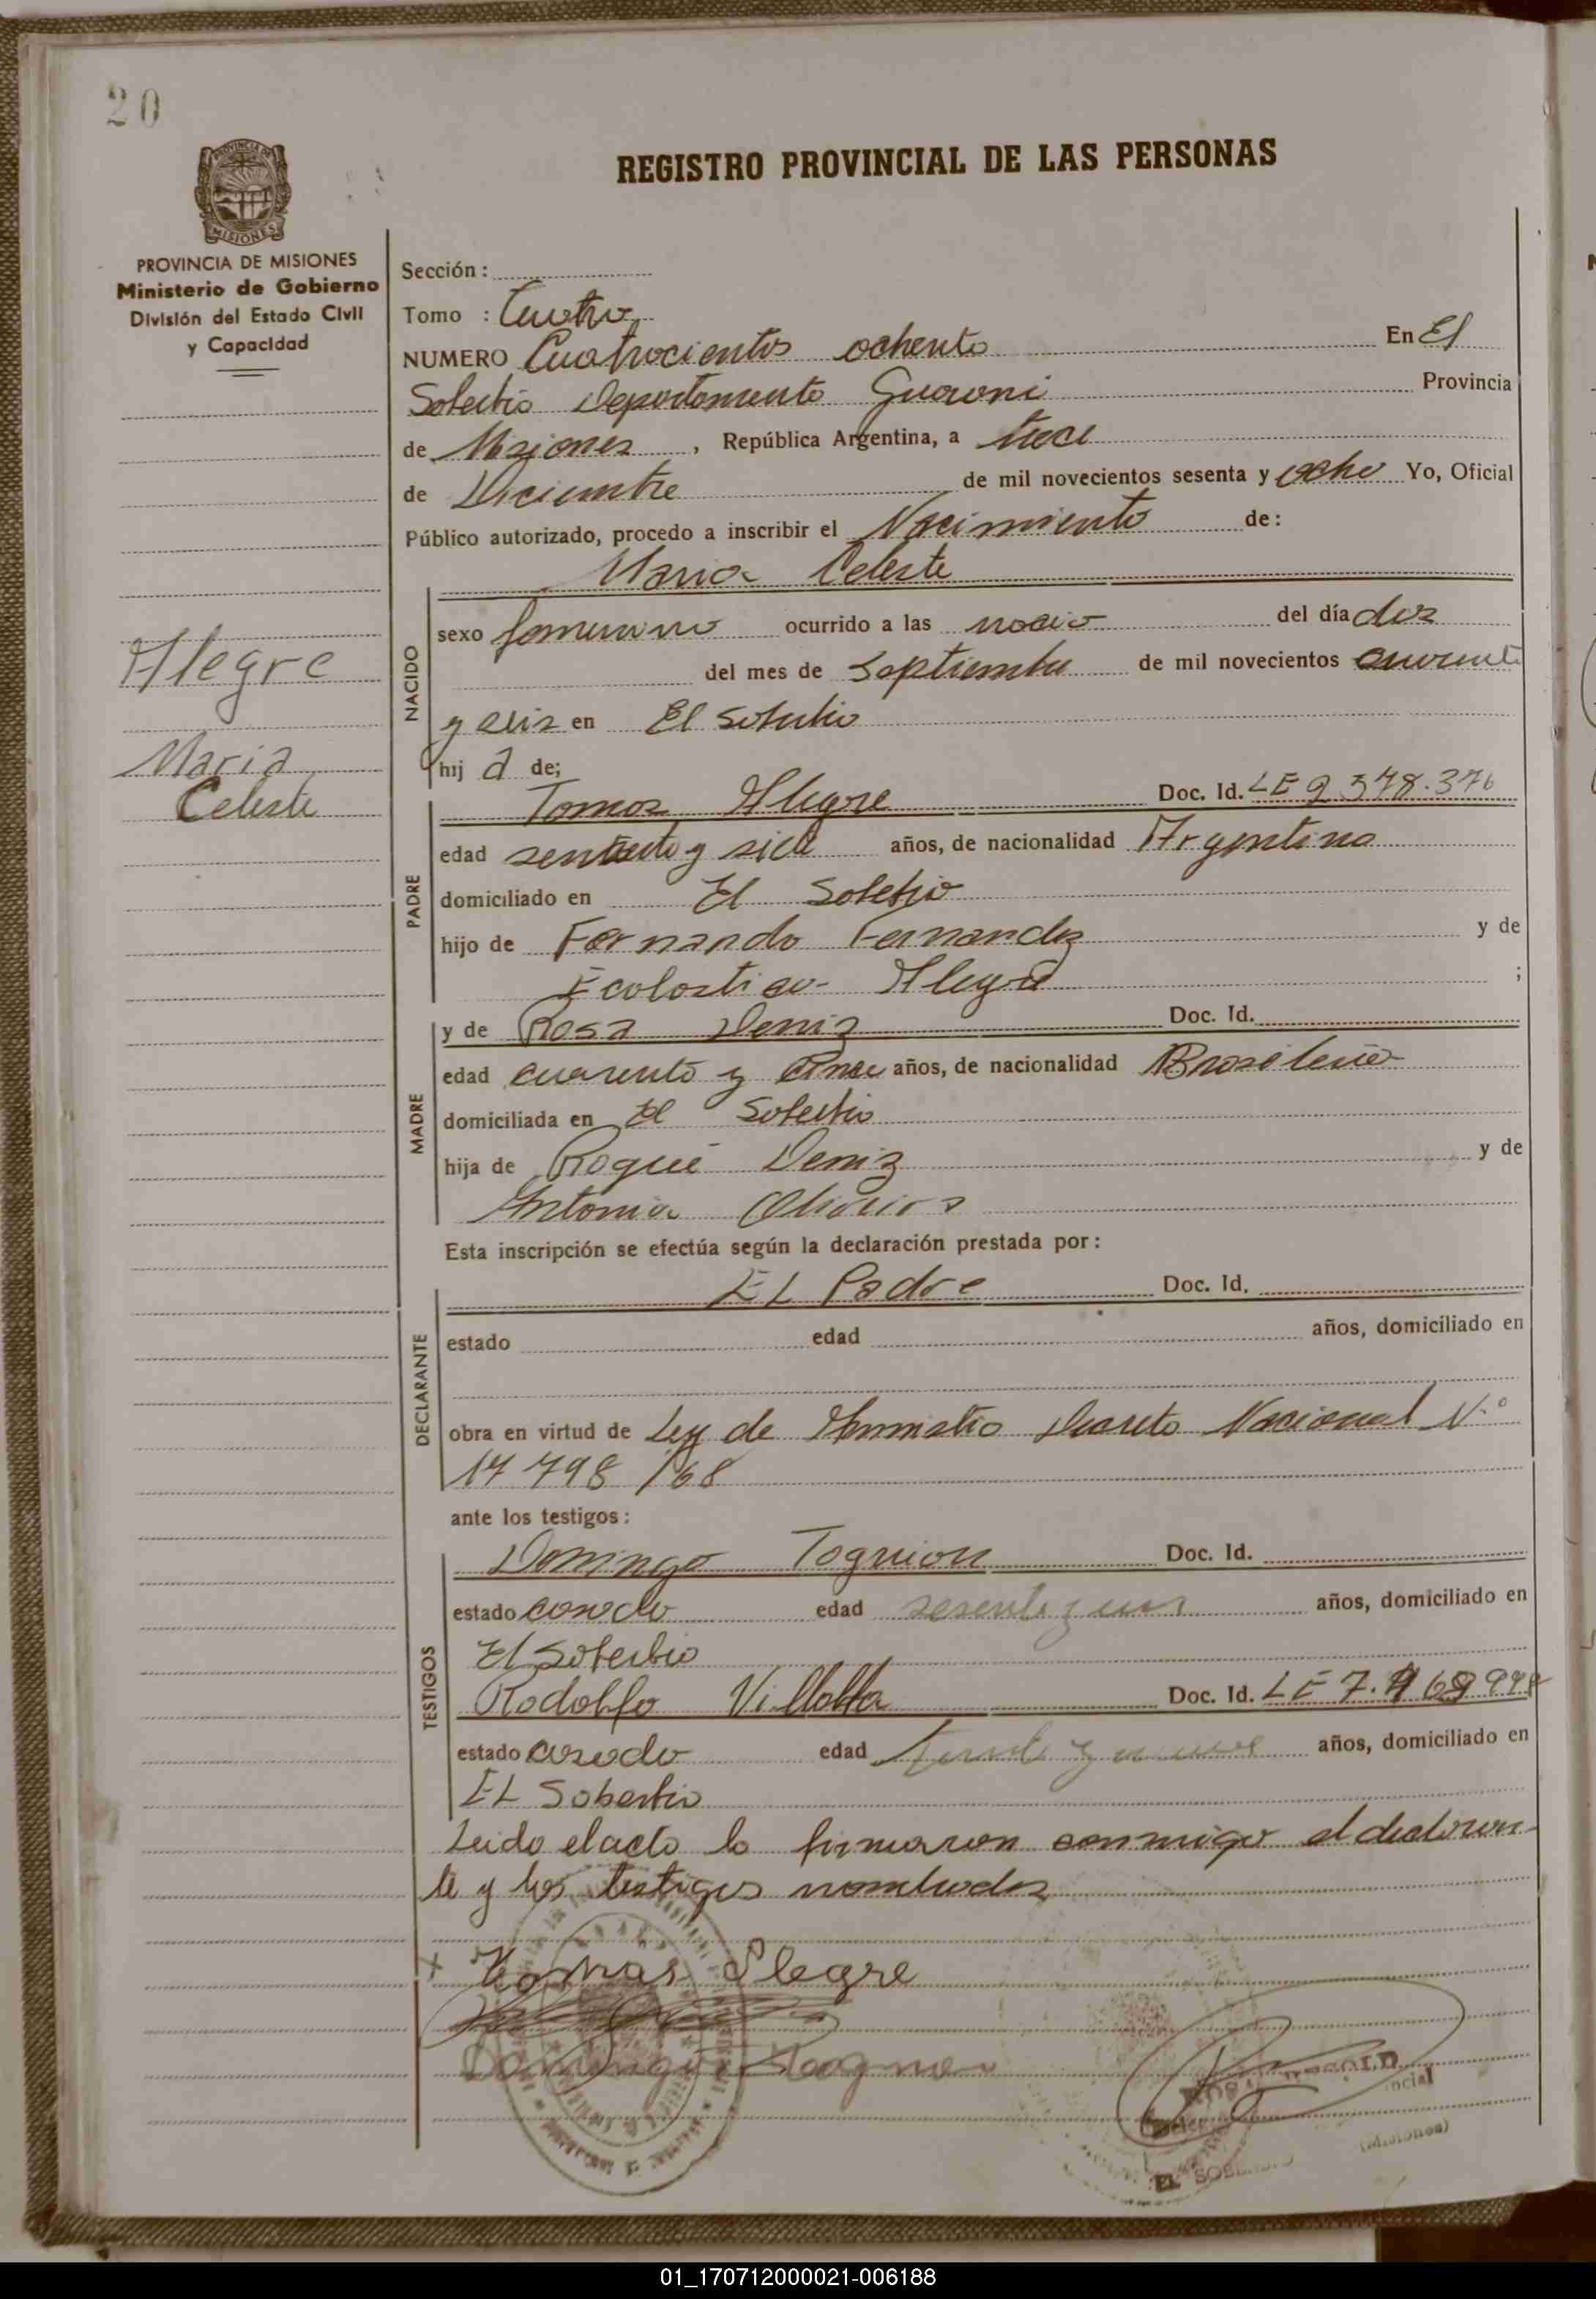 20
REGISTRO PROVINCIAL DE LAS PERSONAS
PROVINCIA DE MISIONES
Ministerio de Gobierno
División del Estado Civil
y Capacidad
Sección :
Tomo : Cuatro
NUMERO Cuatrocientos ochenta En El
Soberbio Departamento Guarani Provincia
de Misiones , República Argentina, a trece
de Diciembre de mil novecientos sesenta y ocho Yo, Oficial
Público autorizado, procedo a inscribir el Nacimiento de:
Maria Celeste
NACIDO
sexo femenino ocurrido a las del día dos
del mes de Septiembre de mil novecientos cuarenta
y seis en El Soberbio
hij a de;
Alegre
Maria
Celeste
PADRE
Tomas Alegre Doc. Id. LE 2 578.376
edad y siete años, de nacionalidad Argentina
domiciliado en El Soberbio
hijo de Fernando Fernandez y de
Ecolastica Alegre ;
MADRE
y de Rosa Deniz Doc. Id.
edad cuarenta y cinco años, de nacionalidad Brasileña
domiciliada en El Soberbio
hija de Roque Deniz y de
Antonia Oliveira
Esta inscripción se efectúa según la declaración prestada por :
DECLARANTE
EL Padre Doc. Id.
estado edad años, domiciliado en
obra en virtud de Ley de Amnistia Decreto Nacional N.°
17 798 /68
ante los testigos :
TESTIGOS
Domingo Doc. Id.
estado casado edad sesenta y un años, domiciliado en
El Soberbio
Rodolfo Villalba Doc. Id. LE 7.
estado casado edad años, domiciliado en
EL Soberbio
Leido el acta la firmaron conmigo el declaran-
te y los testigos nombrados
x Tomas Alegre
Domingo
EL SOBERBIO
(Misiones)
01_170712000021-006188